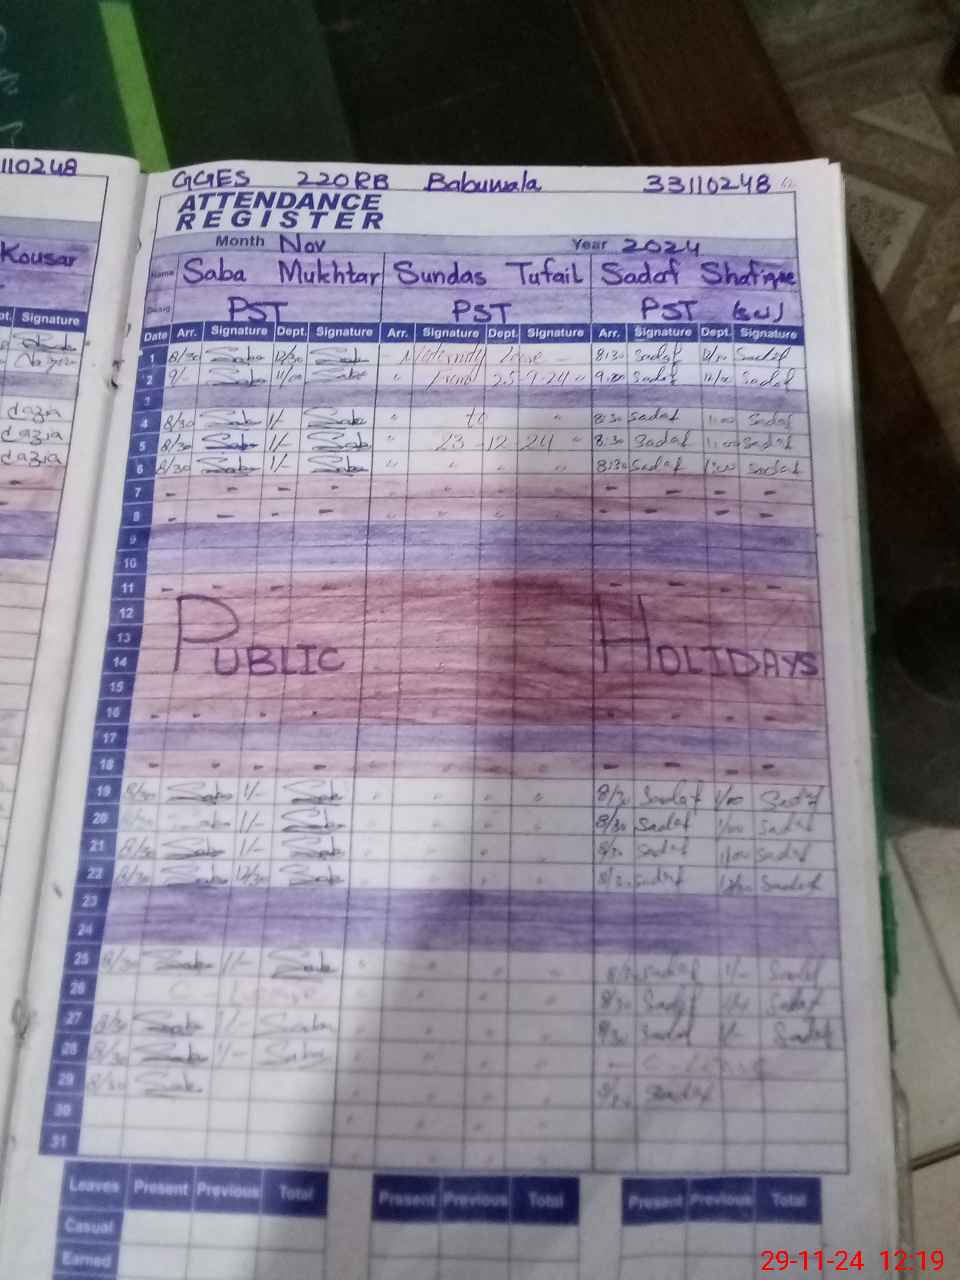 110248
GGES 220RB Babuwala 33110248
ATTENDANCE
REGISTER
Month Nov Year 2024
Kousar
Name Saba Mukhtar Sundas Tufail Sadaf Shafique
PST PST PST
Signature
Date Arr. Signature Dept. Signature Arr. Signature Dept. Signature Arr. Signature Dept. Signature
1 8/30 Saba 12/30 Saba Maternity leave 8:30 Sadaf Sadaf
2 9/- Saba 11/00 Saba from 25-9-24 Sadaf 11/00 Sadaf
3
4 8/30 Saba 1/- Saba to 8:30 Sadaf 1:00 Sadaf
5 8/30 Saba 1/- Saba 23-12-24 8:30 Sadaf 1:00 Sadaf
6 8/30 Saba 1/- Saba 8:30 Sadaf 1:00 Sadaf
7
8
9
10
11
12
13
PUBLIC HOLIDAYS
14
15
16
17
18
19 8/30 Saba 1/- Saba 8/30 Sadaf 1/00 Sadaf
20 1/- Saba 8/30 Sadaf 1/00 Sadaf
21 8/30 Saba 1/- Saba 8/30 Sadaf 1/00 Sadaf
22 8/30 Saba 12/30 Saba Sadaf Sadaf
23
24
25 8/30 Saba 1/- Saba Sadaf 1/- Sadaf
26 8/30 Sadaf Sadaf
27 8/30 Saba 1/- Saba 8/30 Sadaf 1/- Sadaf
28 8/30 Saba 1/- Saba
29 8/30 Saba Sadaf
30
31
Leaves Present Previous Total Present Previous Total Present Previous Total
Casual
Earned
29-11-24 12:19